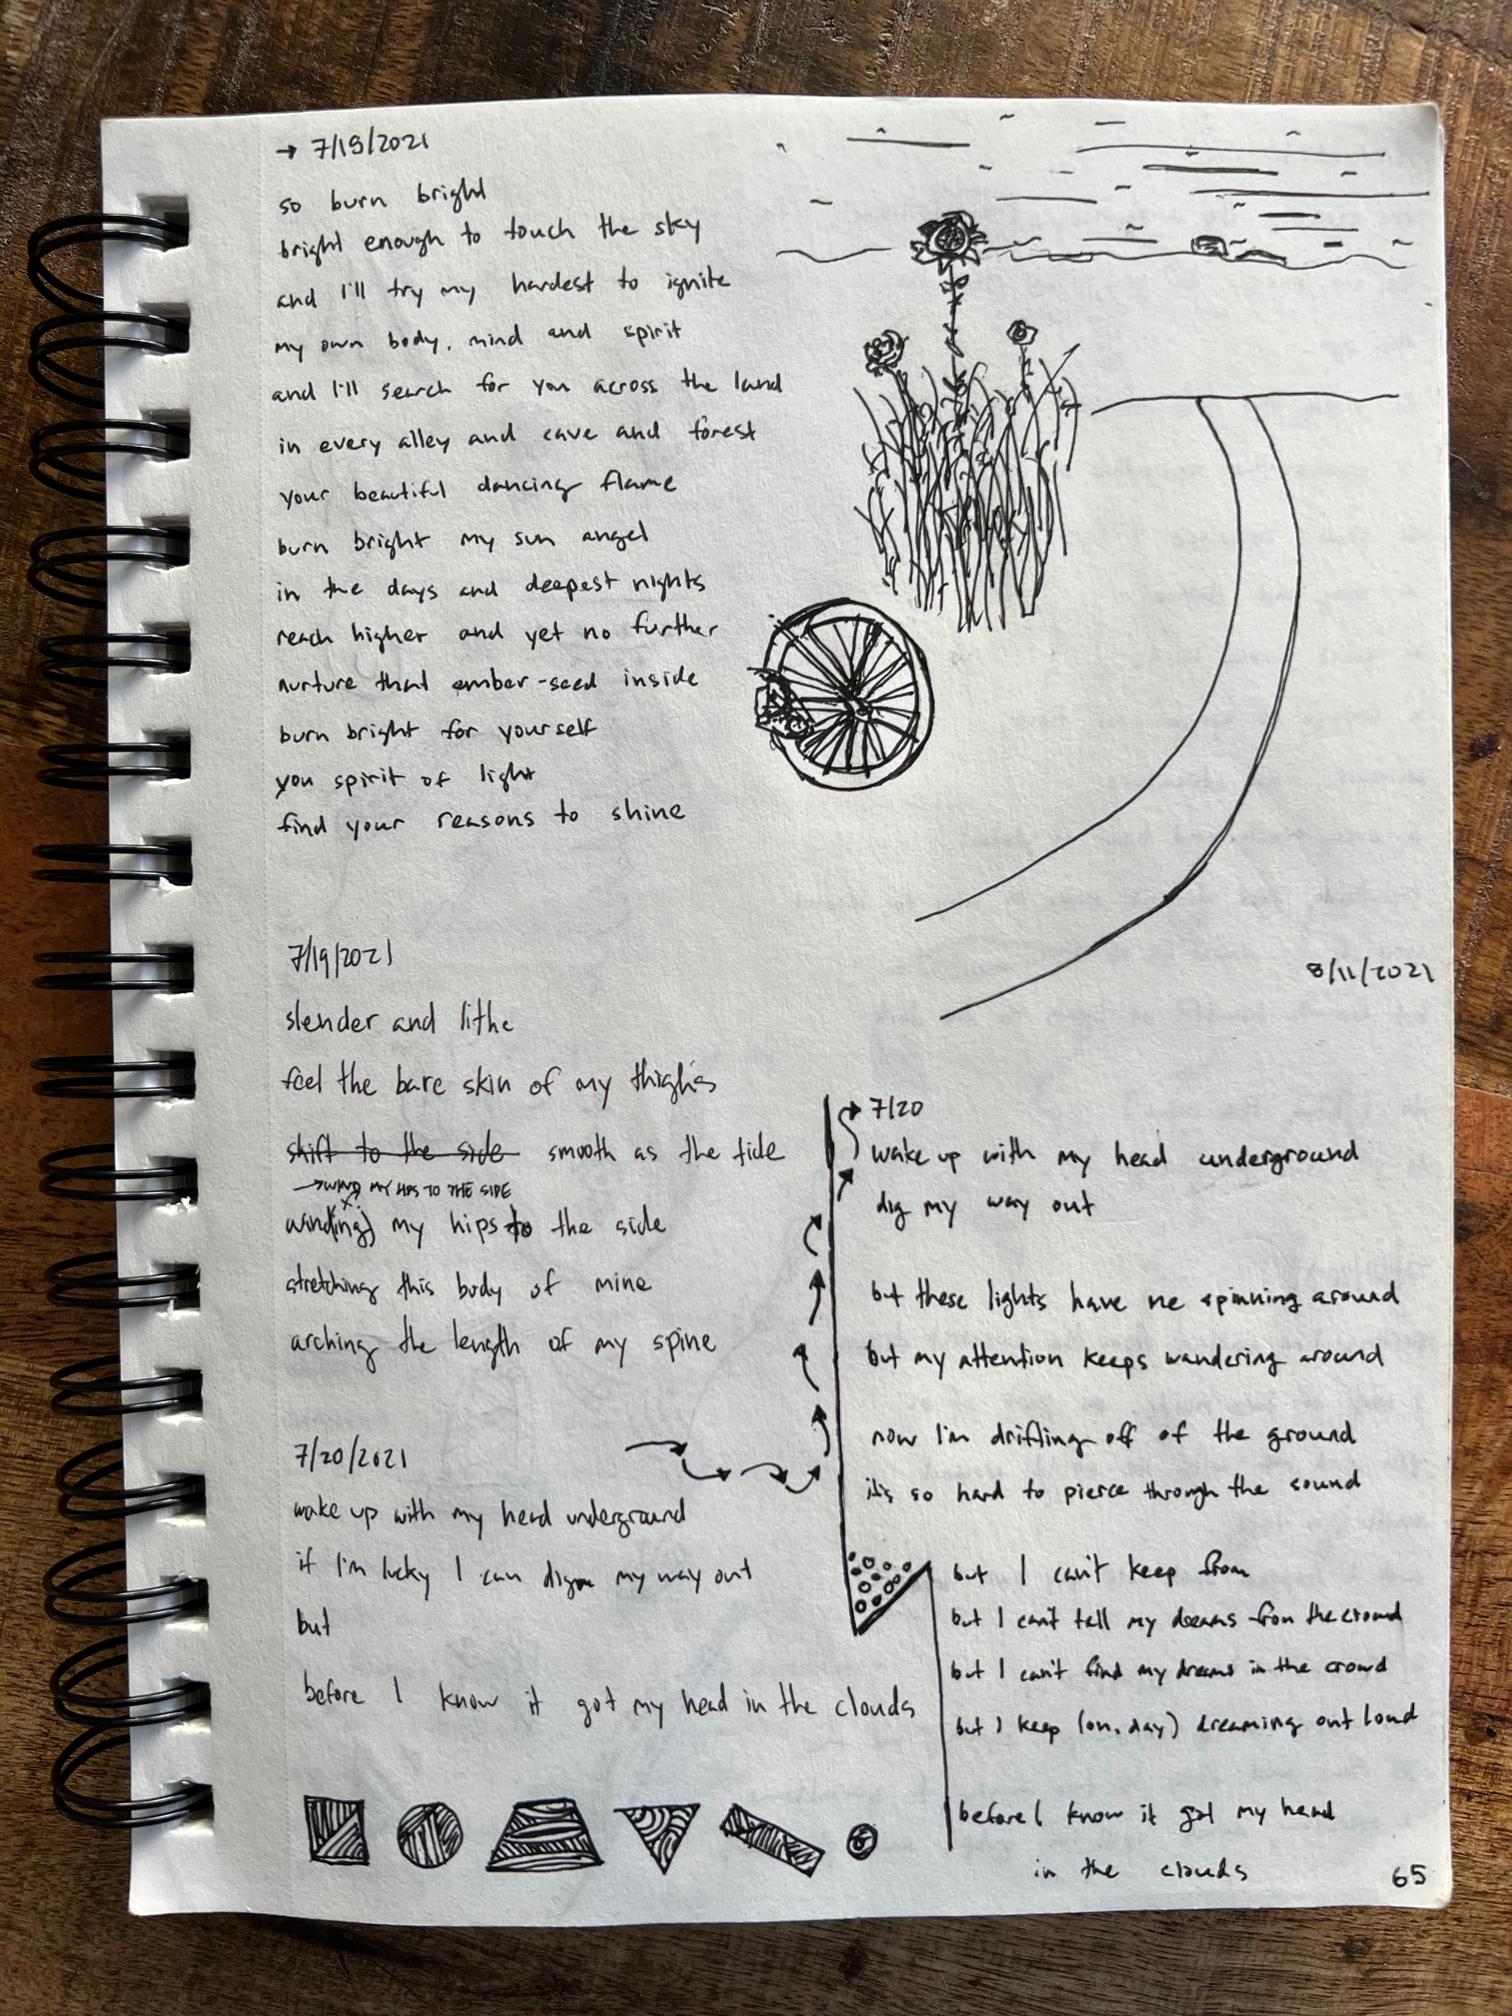 → 7/15/2021
so burn bright
bright enough to touch the sky
and I'll try my hardest to ignite
my own body, mind and spirit
and I'll search for you across the land
in every alley and cave and forest
your beautiful dancing flame
burn bright my sun angel
in the days and deepest nights
reach higher and yet no further
nurture that ember-seed inside
burn bright for yourself
you spirit of light
find your reasons to shine
7/19/2021
slender and lithe
feel the bare skin of my thighs
shift to the side smooth as the tide
→ WIND MY HIPS TO THE SIDE
wind(ing) my hips to the side
stretching this body of mine
arching the length of my spine
7/20/2021
wake up with my head underground
if I'm lucky I can dig my way out
but
before I know it got my head in the clouds
8/11/2021
7/20
wake up with my head underground
dig my way out
but these lights have me spinning around
but my attention keeps wandering around
now I'm drifting off of the ground
it's so hard to pierce through the sound
but I can't keep from
but I can't tell my dreams from the crowd
but I can't find my dreams in the crowd
but I keep (on, day) dreaming out loud
before I know it got my head
in the clouds
65